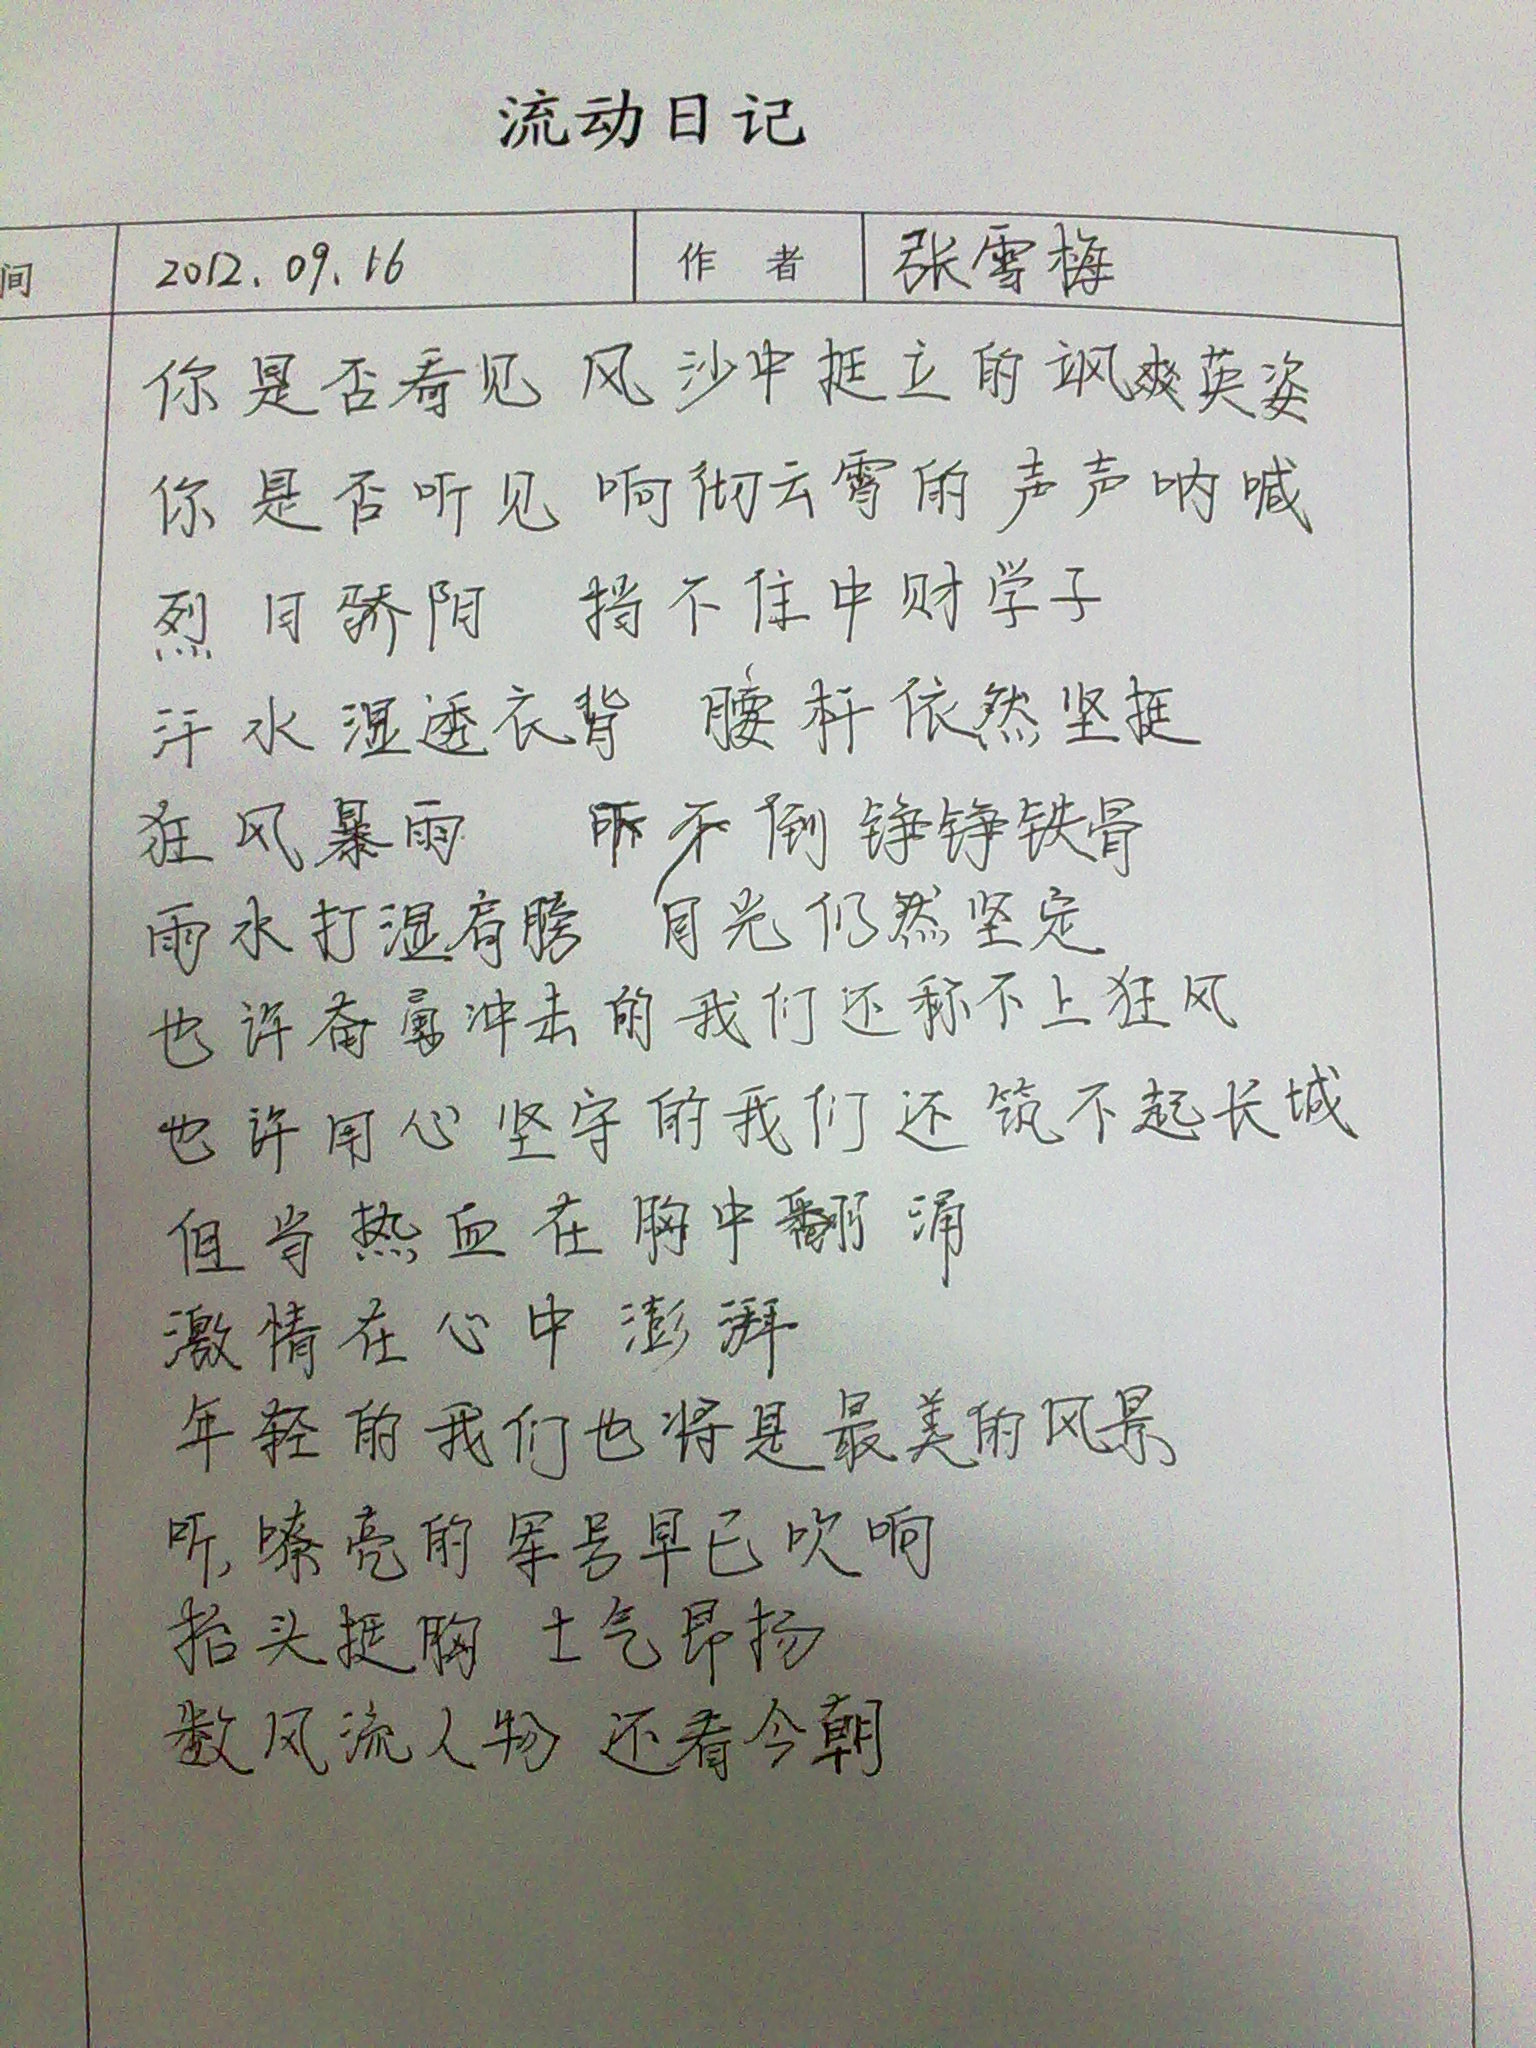 流动日记
间 2012.09.16 作者 张雪梅
你是否看见 风沙中挺立的飒爽英姿
你是否听见 响彻云霄的声声呐喊
烈日骄阳 挡不住中财学子
汗水湿透衣背 腰杆依然坚挺
狂风暴雨 吓不倒铮铮铁骨
雨水打湿肩膀 目光仍然坚定
也许奋勇冲击的我们还称不上狂风
也许用心坚守的我们还筑不起长城
但当热血在胸中翻涌
激情在心中澎湃
年轻的我们也将是最美的风景
听,嘹亮的军号早已吹响
抬头挺胸 士气昂扬
数风流人物 还看今朝